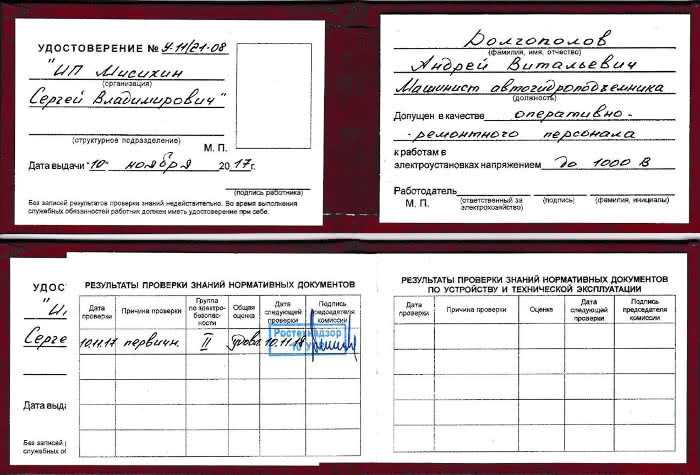 УДОСТОВЕРЕНИЕ № У-11/21-08
"ИП Мисихин
(организация)
Сергей Владимирович"
(структурное подразделение)
М. П.
Дата выдачи "10" ноября 2017г.
(подпись работника)
Без записей результатов проверки знаний недействительно. Во время выполнения
служебных обязанностей работник должен иметь удостоверение при себе.
Долгополов
(фамилия, имя, отчество)
Андрей Витальевич
Машинист автогидроподъемника
(должность)
Допущен в качестве оперативно-
-ремонтного персонала
к работам в
электроустановках напряжением до 1000 В
Работодатель
М. П. (ответственный за электрохозяйство) (подпись) (фамилия, инициалы)
УДОС
"И
Серге
Дата выда
Без записей р
служебных об
РЕЗУЛЬТАТЫ ПРОВЕРКИ ЗНАНИЙ НОРМАТИВНЫХ ДОКУМЕНТОВ
Дата проверки Причина проверки Группа по электро-безопас-ности Общая оценка Дата следующей проверки Подпись председателя комиссии
10.11.17 первичн. II удовл. 10.11.18
Ростехнадзор
РЕЗУЛЬТАТЫ ПРОВЕРКИ ЗНАНИЙ НОРМАТИВНЫХ ДОКУМЕНТОВ
ПО УСТРОЙСТВУ И ТЕХНИЧЕСКОЙ ЭКСПЛУАТАЦИИ
Дата проверки Причина проверки Оценка Дата следующей проверки Подпись председателя комиссии